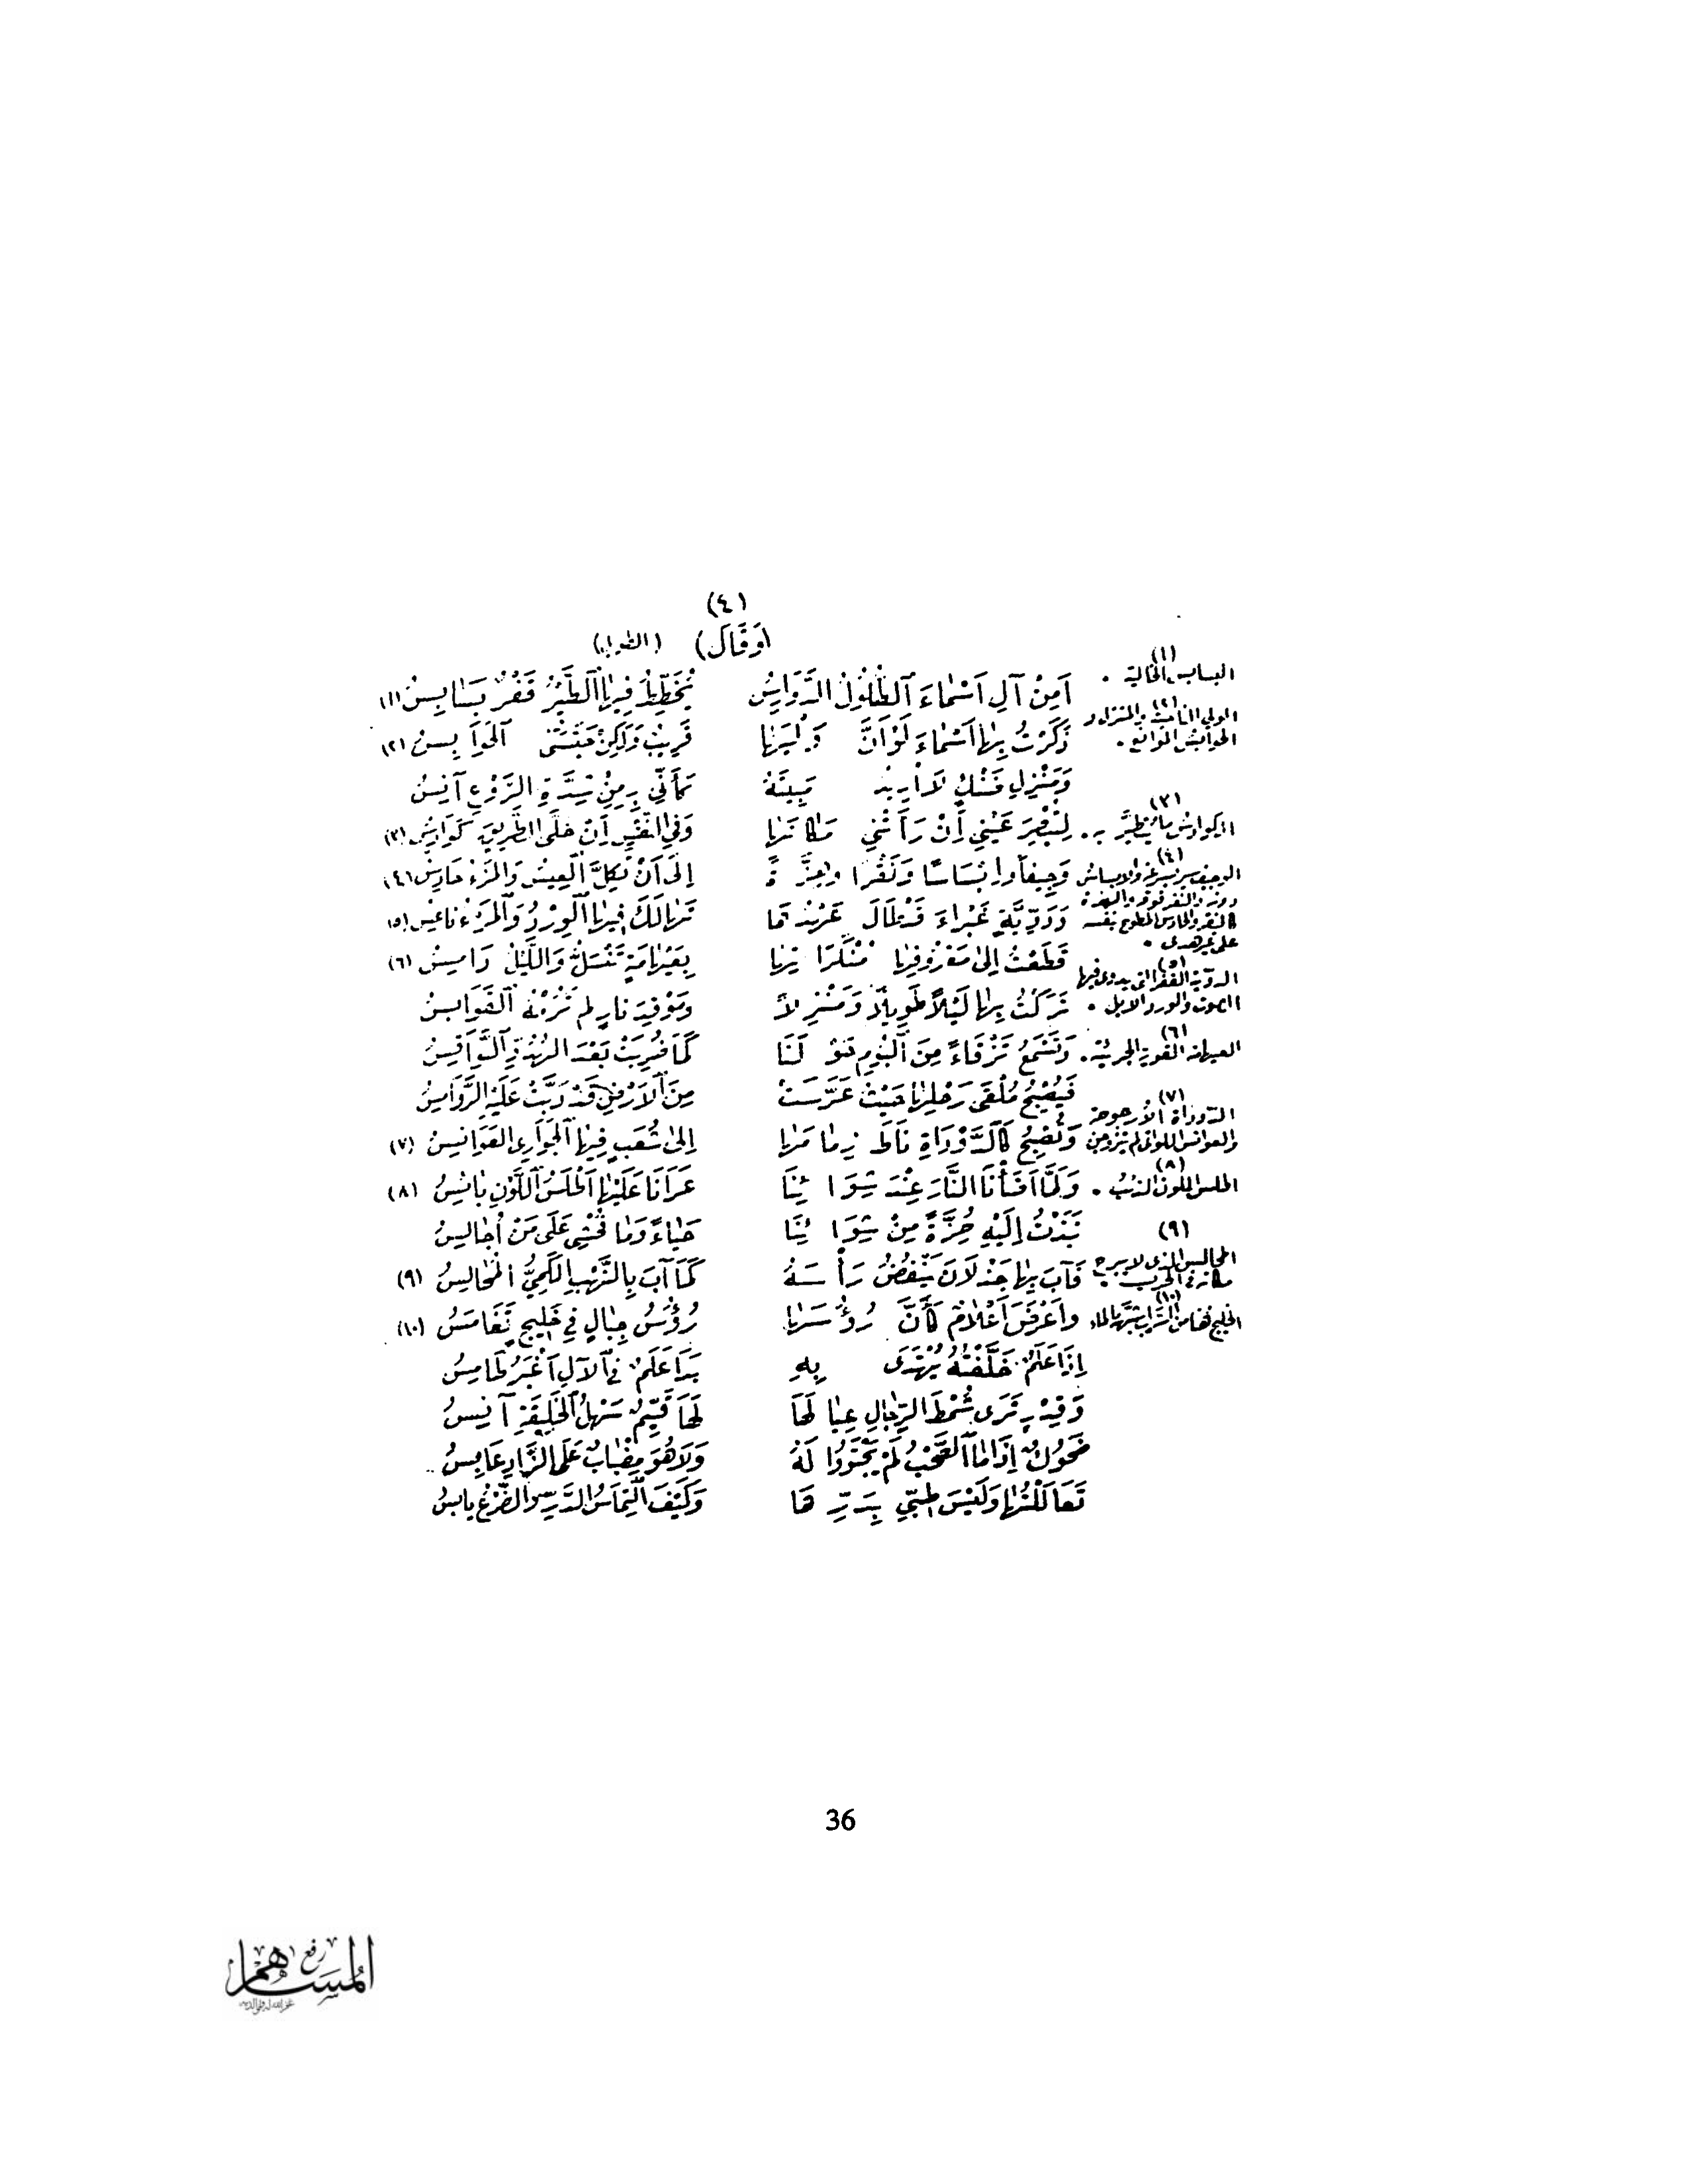 (٤)
(وَقَالَ) (الطويل)
أَمِنْ آلِ أَسْمَاءَ ٱلطُّلُولُ الدَّوَارِسُ يُخَطِّطُ فِيهَا ٱلطَّيْرُ قَفْرٌ بَسَابِسُ (١)
ذَكَرْتُ بِهَا أَسْمَاءَ لَوْ أَنَّ وَلْيَهَا قَرِيبٌ وَلَكِنْ حَبَسَتْنِي ٱلْحَوَابِسُ (٢)
وَمَنْزِلِ ضَنْكٍ لَا أُرِيدُ مَبِيتَهُ كَأَنِّي بِهِ مِنْ شِدَّةِ الرَّوْعِ آنِسُ
لِتُبْصِرَ عَيْنِي أَنْ رَأَتْنِي مَكَانَهَا وَفِي النَّفْسِ إِنْ خَلَّى الطَّرِيقَ كَوَادِسُ (٣)
وَجِيفاً وَإِبْسَاسًا وَنَقْرًا وَهِزَّةً إِلَى أَنْ تَكِلَّ ٱلْعِيسُ وَٱلْمَرْءُ حَادِسُ (٤)
وَدَوِّيَّةٍ غَبْرَاءَ قَدْ طَالَ عَهْدُهَا تَهَالَكَ فِيهَا ٱلْوِرْدُ وَٱلْمَرْءُ نَاعِسُ (٥)
قَطَعْتُ إِلَى مَعْرُوفِهَا مُنْكَرَاتِهَا بِعَيْهَامَةٍ تَنْسَلُّ وَاللَّيْلُ دَامِسُ (٦)
تَرَكْتُ بِهَا لَيْلاً طَوِيلاً وَمَنْزِلاً وَمَوْقِدَ نَارٍ لَمْ تَرُمْهُ ٱلْقَوَابِسُ
وَتَسْمَعُ تَزْقَاءً مِنَ ٱلْبُومِ حَوْلَنَا كَمَا ضُرِبَتْ بَعْدَ الْهُدُوِّ ٱلنَّوَاقِسُ
فَيُصْبِحُ مُلْقَى رَحْلِهَا حَيْثُ عَرَّسَتْ مِنَ ٱلْأَرْضِ قَدْ دَبَّتْ عَلَيْهِ الرَّوَامِسُ
وَتُصْبِحُ كَٱلدَّوْدَاةِ نَاطَ زِمَامَهَا إِلَى شُعَبٍ فِيهَا ٱلْجَوَارِي ٱلْعَوَانِسُ (٧)
وَلَمَّا أَضَأْنَا النَّارَ عِنْدَ شِوَائِنَا عَرَانَا عَلَيْهَا أَطْلَسُ ٱللَّوْنِ بَائِسُ (٨)
نَبَذْتُ إِلَيْهِ حُزَّةً مِنْ شِوَائِنَا حَيَاءً وَمَا فُحْشِي عَلَى مَنْ أُجَالِسُ
فَآبَ بِهَا جَذْلَانَ يَنْفُضُ رَأْسَهُ كَمَا آبَ بِالنَّهْبِ ٱلْكَمِيُّ الْمُحَالِسُ (٩)
وَأَعْرَضَ أَعْلَامٌ كَأَنَّ رُؤُسَهَا رُؤُسُ جِبَالٍ فِي خَلِيجٍ تَغَامَسُ (١٠)
إِذَا عَلَمٌ خَلَّفْتُهُ يُهْتَدَى بِهِ بَدَا عَلَمٌ فِي ٱلْآلِ أَغْبَرُ طَامِسُ
وَقِدْرٍ تَرَى شُمْطَ الرِّجَالِ عِيَالَهَا لَهَا قَيِّمٌ سَهْلُ ٱلْخَلِيقَةِ آنِسُ
ضَحُوكٌ إِذَا مَا ٱلصَّحْبُ لَمْ يَجْتَوُوا لَهُ وَلَا هُوَ مِضْبَابٌ عَلَى الزَّادِ عَابِسُ
تَعَالَلْتُهَا وَلَيْسَ طِبِّي بِدَرِّهَا وَكَيْفَ ٱلْتِمَاسُ الدَّرِّ وَالضَّرْعُ يَابِسُ
(١)
البسابس الخالية .
(٢)
الحوابس الموانع .
(٣)
الكوادس ما يتطير به .
(٤)
على غير هدى .
(٥)
الدوّية القفر التي يدوى فيها
الصوت والورد الابل .
(٦)
العيهامة القوية الجريئة .
(٧)
الدوداة الأرجوحة
والعوانس اللواتي لم يتزوجن
(٨)
اطلس اللون الذئب .
(٩)
المحالس الذي لا يبرح
مكانه في الحرب .
(١٠)
الخليج هنا من السراب شبهه بالماء
36
المساهم
رفع
غفر الله له ولوالديه